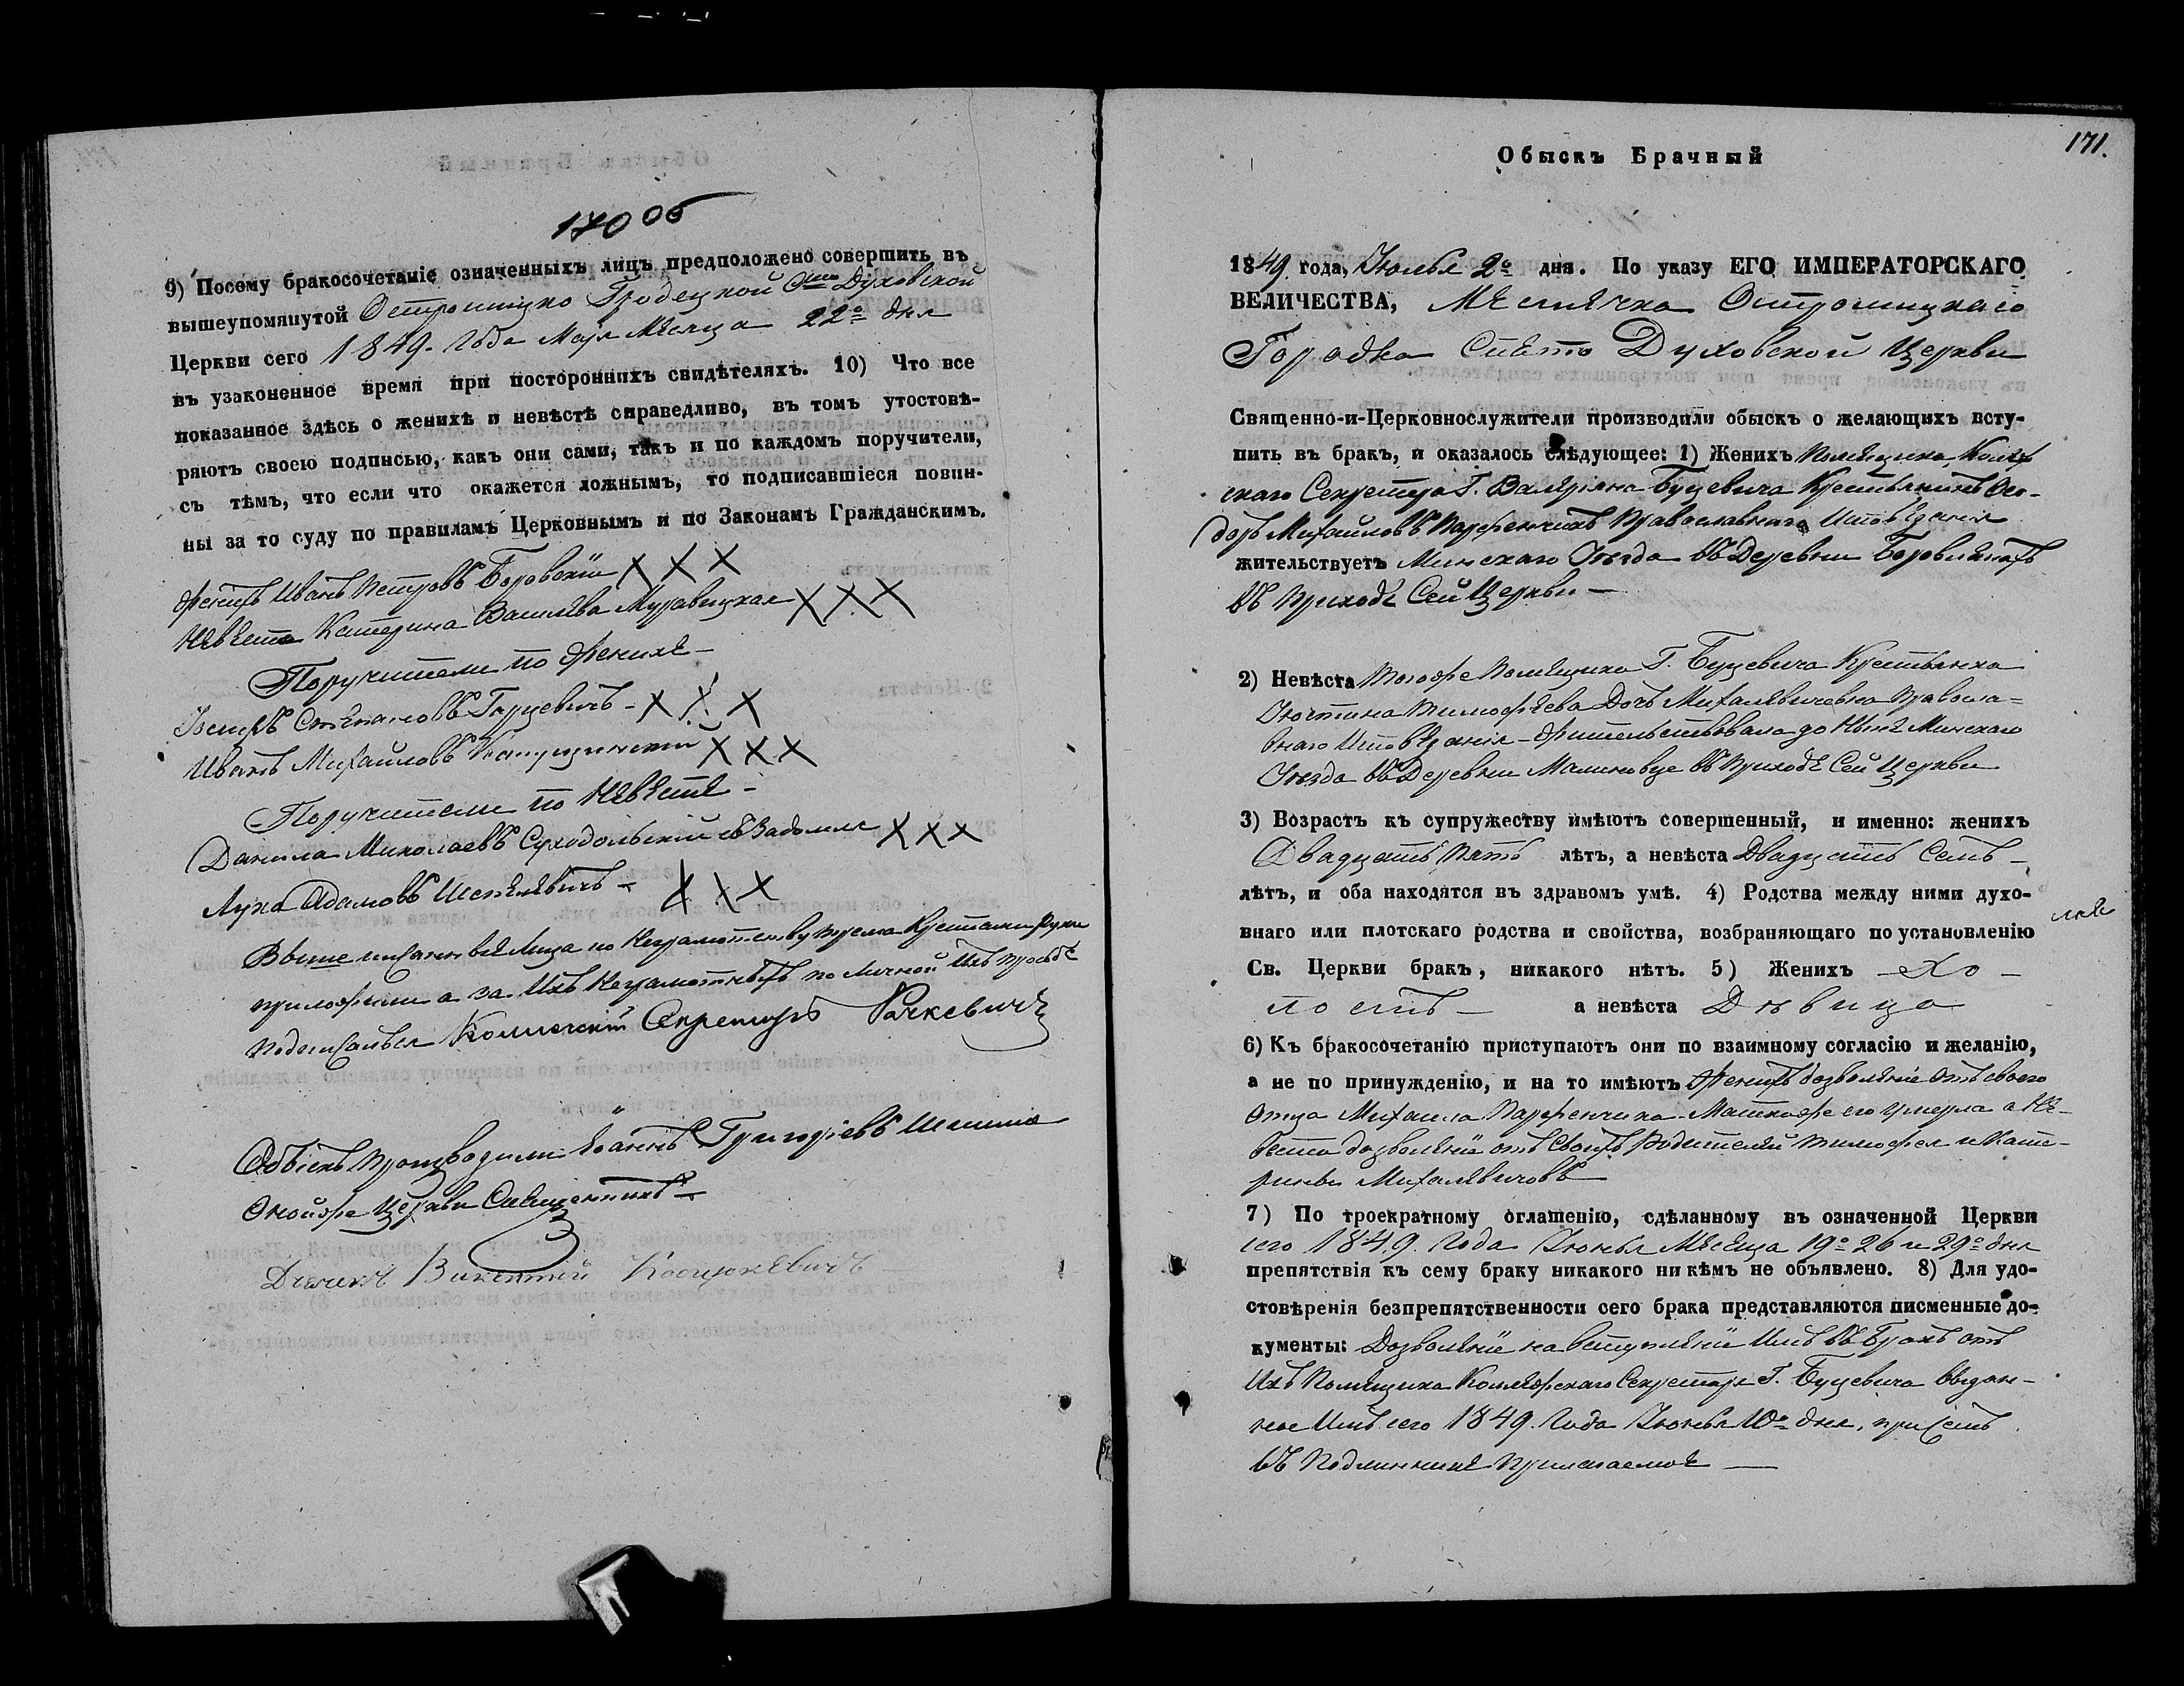 170 об
9) Посему бракосочетаніе означенныхъ лицъ предположено совершить въ
вышеупомянутой Острошицко Гродецкой Свято Духовской
Церкви сего 1849. Года Мая Месяца 22го дня
въ узаконенное время при постороннихъ свидѣтеляхъ. 10) Что все
показанное здѣсь о женихѣ и невѣстѣ справедливо, въ томъ утостовѣ-
ряютъ своею подписью, какъ они сами, такъ и по каждомъ поручители,
съ тѣмъ, что если что окажется ложнымъ, то подписавшіеся повин-
ны за то суду по правиламъ Церковнымъ и по Законамъ Гражданскимъ.
Женихъ Иванъ Петровъ Боровскій X X X
Невѣста Катерина Васильева Муравицкая X X X
Поручители по женихѣ —
Степановъ Гарцевичъ — X X X
Иванъ Михайловъ X X X
Поручители по Невѣстѣ —
Данила Миколаевъ Суходольскій X X X
Лука Адамовъ Шепелевичъ — X X X
Выше писанныя Лица по Неграмотству трема Крестами руки
приложили а за Ихъ Неграмотныхъ по личной Ихъ прозьбѣ
подписался Коллежскій Секретарь Рачкевичъ
Обыскъ Производили Іоаннъ Григоріевъ
Оной же Церкви Священникъ
Дьячекъ Викентій Костюкевичъ
171.
Обыскъ Брачный
1849 года, Июлья 2о дня. По указу ЕГО ИМПЕРАТОРСКАГО
ВЕЛИЧЕСТВА, Местечка Острошицкаго
Городка Свято Духовской Церкви
Священно-и-Церковнослужители производили обыскъ о желающихъ всту-
пить въ бракъ, и оказалось слѣдующее: 1) Женихъ Помещика Колеж
скаго Секретаря Г. Валеріяна Буцевича Крестьянинъ Ѳео-
доръ Михайловъ Парфенчикъ Православнаго Исповеданія
жительствуетъ Минскаго Уезда въ Деревни Боровлянахъ
въ приходѣ Сей Церкви —
2) Невѣста Тогоже Помещика Г. Буцевича Крестьянка
Юстина Тимофеева Дочь Михалевичевна Правосла=
внаго Исповеданія — Жительствовала до Ныне Минскаго
Уезда въ Деревни Малиновце въ приходѣ Сей Церкви
3) Возрастъ къ супружеству имѣютъ совершенный, и именно: женихъ
Двадцать Пять лѣтъ, а невѣста Двадцать Семь —
лѣтъ, и оба находятся въ здравомъ умѣ. 4) Родства между ними духо-
внаго или плотскаго родства и свойства, возбраняющаго по установленію
Св. Церкви бракъ, никакого нѣтъ. 5) Женихъ — Хо —
лостъ — а невѣста Девица
6) Къ бракосочетанію приступаютъ они по взаимному согласію и желанію,
а не по принужденію, и на то имѣютъ Женихъ дозволеніе отъ своего
Отца Михаила Парфенчика Матка же его умерла а Не-
веста дозволеніе отъ Своихъ Родителей Тимофея и Кате-
рины Михалевичовъ
7) По троекратному оглашенію, сдѣланному въ означенной Церкви
сего 1849. Года Июнья Месеца 19о 26 и 29о дня
препятствія къ сему браку никакого ни кѣмъ не объявлено. 8) Для удо-
стовѣренія безпрепятственности сего брака представляются писменные до-
кументы: Дозволеніе на вступленіе Имъ въ Бракъ отъ
Ихъ Помещика Коллежскаго Секретаря Г. Буцевича выдан-
ное Имъ сего 1849. Года Июнья 10о дня, при семъ
въ Подлиннике Прилагаемое —